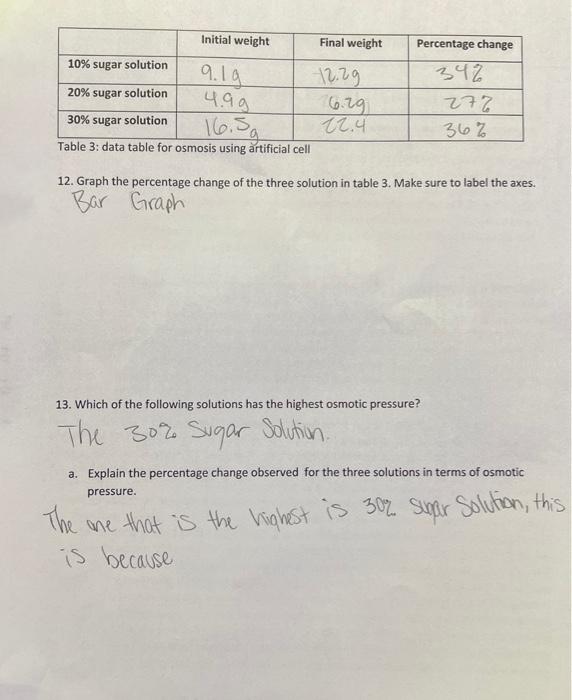 Initial weight Final weight Percentage change
10% sugar solution 9.1g 12.2g 34%
20% sugar solution 4.9g 6.2g 27%
30% sugar solution 16.5g 22.4 36%
Table 3: data table for osmosis using artificial cell
12. Graph the percentage change of the three solution in table 3. Make sure to label the axes.
Bar Graph
13. Which of the following solutions has the highest osmotic pressure?
The 30% Sugar Solution.
a. Explain the percentage change observed for the three solutions in terms of osmotic
pressure.
The one that is the highest is 30% sugar Solution, this
is because